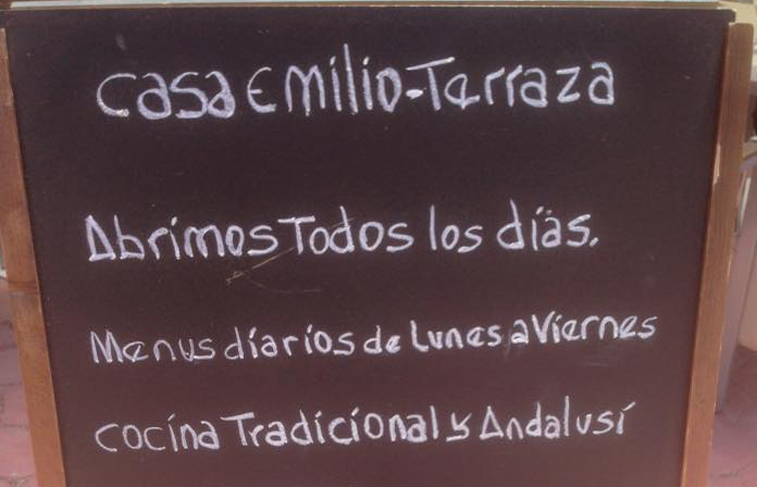 Casa Emilio-Terraza
Abrimos Todos los días.
Menus diarios de Lunes a Viernes
Cocina Tradicional y Andalusí